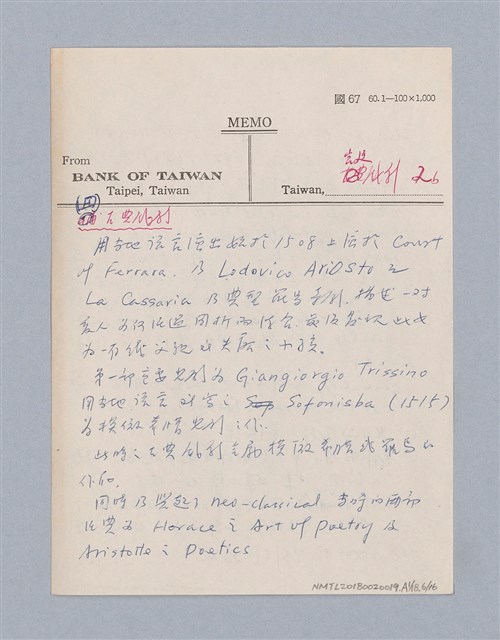 國 67 60.1—100×1,000
MEMO
From
BANK OF TAIWAN
Taipei, Taiwan
Taiwan,
26
(四) 古典戲劇
用當地語言演出始於1508上演於 Court
of Ferrara. 乃 Lodovico Ariosto 之
La Cassaria 乃典型羅馬喜劇. 描述一對
為一有錢父親
第一部重要悲劇為 Giangiorgio Trissino
用當地語言 Sofonisba (1515)
為模倣希臘悲劇之作.
此時之古典戲劇 模倣希臘或羅馬的
作品.
同時乃興起了 neo-classical 當時的兩部
法典為 Horace 之 Art of Poetry 及
Aristotle 之 Poetics
NMTL20180020019.A1/18.6/16